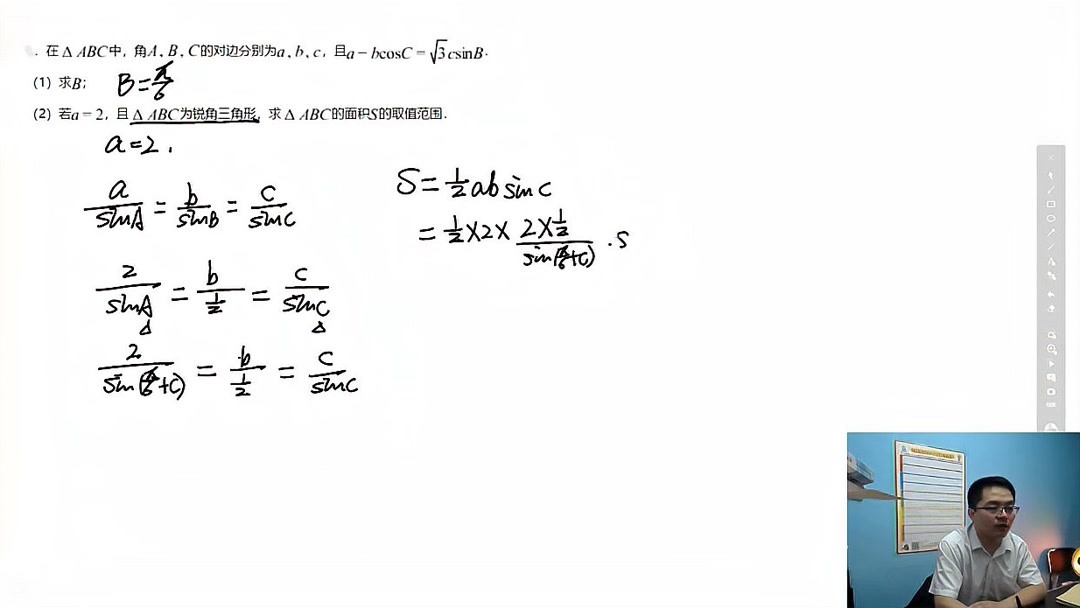 . 在△ABC中，角A, B, C的对边分别为a, b, c，且a－bcosC=√3csinB.
(1) 求B; B=π/6
(2) 若a=2，且△ABC为锐角三角形，求△ABC的面积S的取值范围.
a=2.
a/sinA = b/sinB = c/sinC
2/sinA = b/(1/2) = c/sinC
2/sin(π/6+C) = b/(1/2) = c/sinC
S=1/2absinC
=1/2×2×(2×1/2)/sin(π/6+C).s